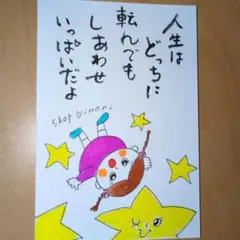 人生は
どっちに
転んでも
しあわせ
いっぱいだよ
shop♡inori